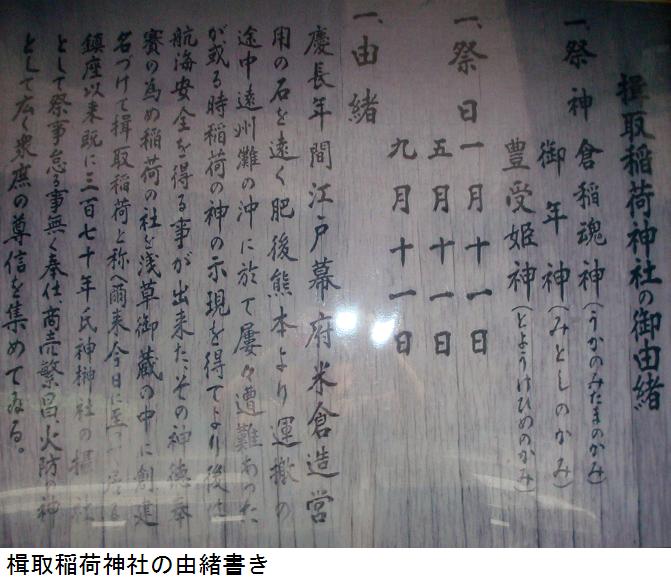 楫取稲荷神社の御由緒
一、祭神 倉稲魂神(うかのみたまのかみ)
御年神(みとしのかみ)
豊受姫神(とようけひめのかみ)
一、祭日 一月十一日
五月十一日
九月十一日
一、由緒
慶長年間江戸幕府米倉造営
用の石を遠く肥後熊本より運搬の
途中遠州灘の沖に於て屡々遭難あった
が或る時稲荷の神の示現を得てより後は
航海安全を得る事が出来た、その神徳奉
賽の為め稲荷の社を浅草御蔵の中に創建
名づけて楫取稲荷と称へ爾来今日に至
鎮座以来既に三百七十年氏神榊神社の摂社
として祭事怠る事無く奉仕、商売繁昌、火防の神
として広く衆庶の尊信を集めてゐる。
楫取稲荷神社の由緒書き